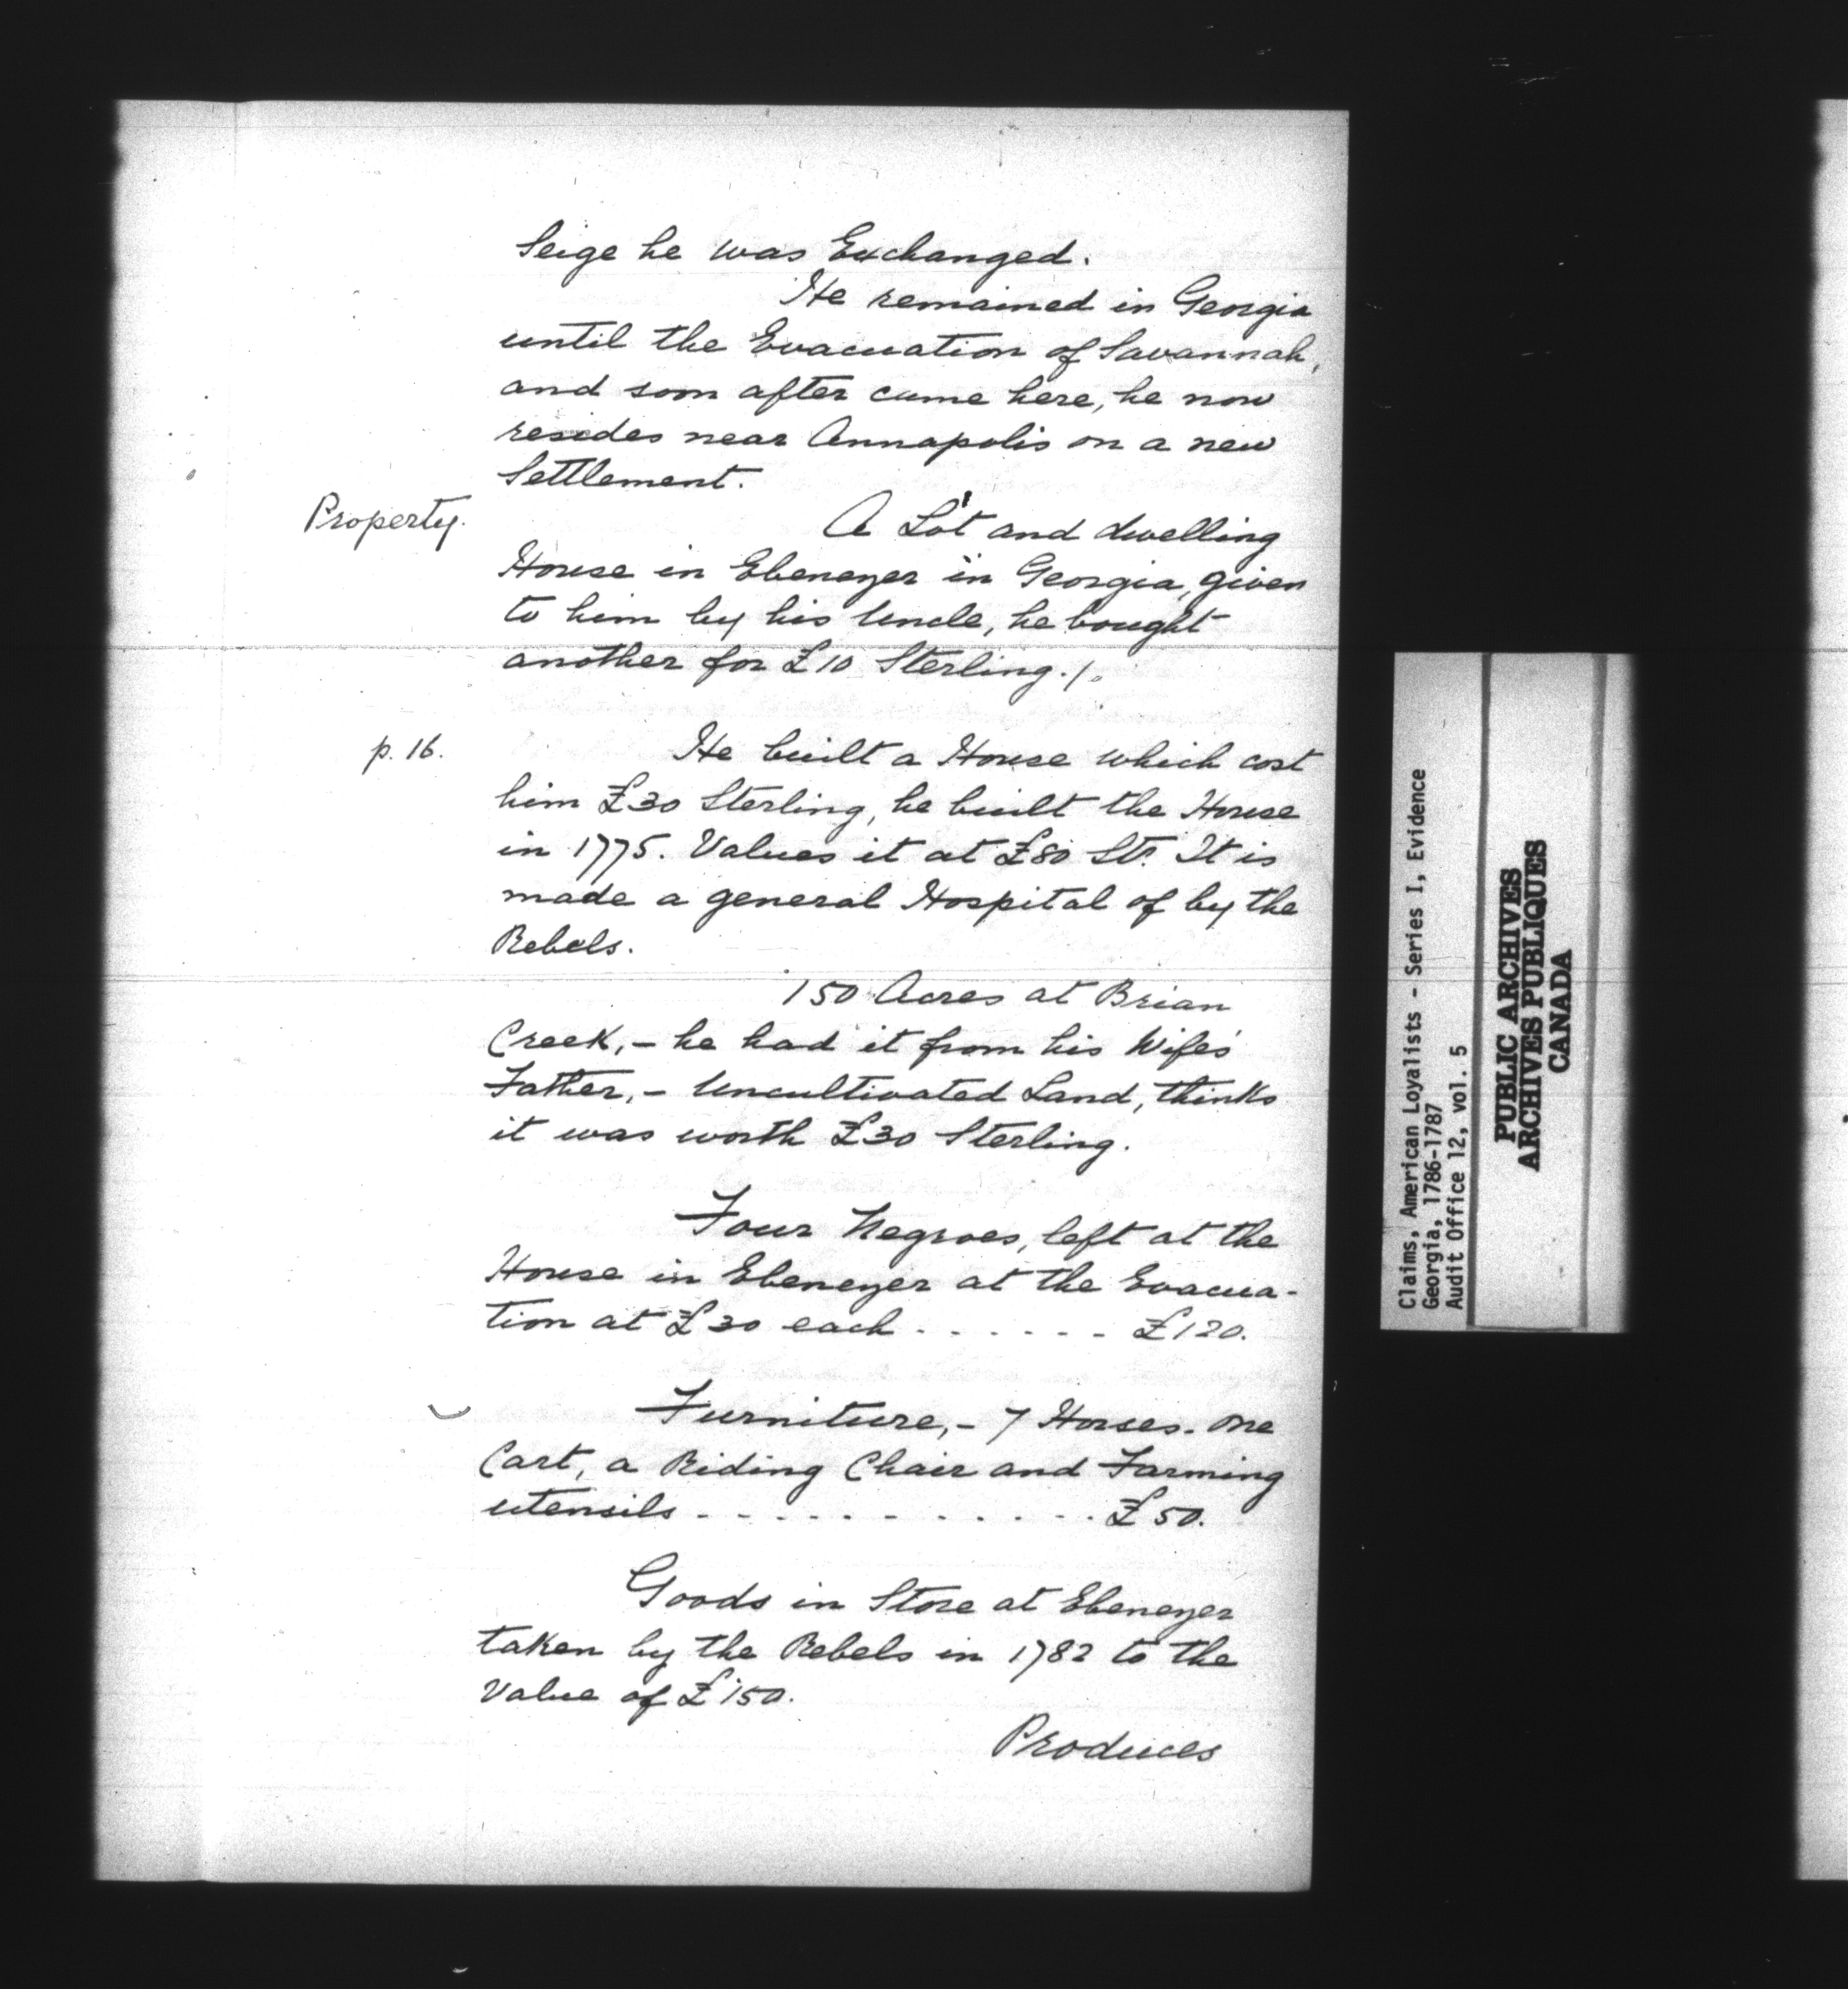 Seige he was Exchanged.
He remained in Georgia
until the Evacuation of Savannah,
and soon after came here, he now
resides near Annapolis on a new
Settlement.
Property.
A Lot and dwelling
House in Ebenezer in Georgia, given
to him by his Uncle, he bought
another for £10 Sterling./.
p. 16.
He built a House which cost
him £30 Sterling, he built the House
in 1775. Values it at £80 St. It is
made a general Hospital of by the
Rebels.
150 Acres at Brian
Creek, - he had it from his Wife's
Father, - Uncultivated Land, thinks
it was worth £30 Sterling.
Four Negroes, left at the
House in Ebenezer at the Evacua-
tion at £30 each . . . . . . £120.
Furniture, - 7 Horses. One
Cart, a Riding Chair and Farming
utensils . . . . . . . . . . . . £50.
Goods in Store at Ebenezer
taken by the Rebels in 1782 to the
Value of £150.
Produces
Claims, American Loyalists - Series I, Evidence
Georgia, 1786-1787
Audit Office 12, vol. 5
PUBLIC ARCHIVES
ARCHIVES PUBLIQUES
CANADA